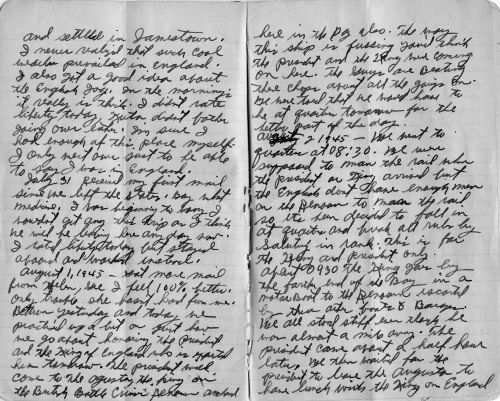 and settled in Jamestown.
I never realized that such cool
weather prevailed in England.
I also got a good idea about
the English fog. In the mornings
it really is thick. I didn't rate
liberty today but didn't bother
going over late. I'm sure I
had enough of this place myself.
I only went over just to be able
to say I was in England.
July 31 Received my first mail
since we left the States. Boy what
medicine. I was beginning to wish I
wouldn't get any this trip as I think
we will be leaving here any day now.
I rated liberty today but stayed
aboard and worked instead.
August 1, 1945 — Got more mail
from Helen, gee I feel 100% better.
Only trouble she hasn't had from me.
Between yesterday and today we
practiced up a bit on just how
we go about honoring the President
and the King of England who is expected
here tomorrow. The president will
come to the Augusta, the king on
the British Battle Cruiser Renown anchored
here in the Bay also. The way
this ship is fussing you'd think
the President and the King were coming
on here. The guys are beating
their chops about all the going on.
We were told that we would have to
be at quarters tomorrow for the
better part of the day.
August 2 1945 — We went to
quarters at 08:30. We were
supposed to man the rail when
the president or King arrived but
the English don't have enough men
on the Renown to man the rail
so it's been decided to fall in
at quarters and break all rules by
Saluting in rank. This is for
the King and president only.
After 0930 the King goes by
the farthest end of the Bay in a
motor boat to the Renown escorted
by two other boats & Barges.
We all stood stiff even though he
was almost a mile away. The
president came about a half hour
later. We then waited for the
president to leave the Augusta to
have lunch with the King on England